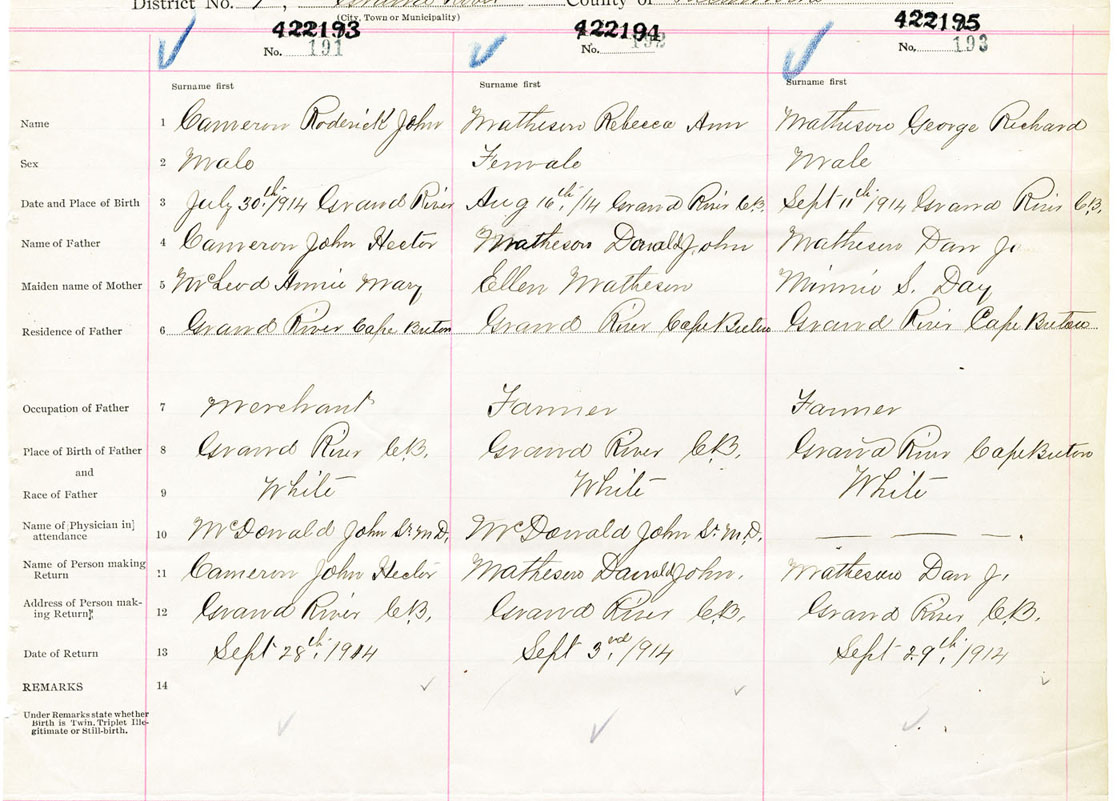 District No. 7, Grand River County of Richmond
(City, Town or Municipality)
422193 422194 422195
No. 191 No. 192 No. 193
Surname first Surname first Surname first
Name 1 Cameron Roderick John Matheson Rebecca Ann Matheson George Richard
Sex 2 Male Female Male
Date and Place of Birth 3 July 30th/1914 Grand River Aug 16th/14 Grand River C.B. Sept 11th/1914 Grand River C.B.
Name of Father 4 Cameron John Hector Matheson Donald John Matheson Dan J.
Maiden name of Mother 5 McLeod Annie Mary Ellen Matheson Minnie S. Day
Residence of Father 6 Grand River Cape Breton Grand River Cape Breton Grand River Cape Breton
Occupation of Father 7 Merchant Farmer Farmer
Place of Birth of Father 8 Grand River C.B. Grand River C.B. Grand River Cape Breton
and
Race of Father 9 White White White
Name of [Physician in]
attendance 10 McDonald John Sr. M.D. McDonald John Sr. M.D. — — —.
Name of Person making
Return 11 Cameron John Hector Matheson Donald John. Matheson Dan J.
Address of Person mak-
ing Return 12 Grand River C.B. Grand River C.B. Grand River C.B.
Date of Return 13 Sept 28th, 1914 Sept 3rd, /1914 Sept 29th, /1914
REMARKS 14
Under Remarks state whether
Birth is Twin, Triplet Ille-
gitimate or Still-birth.